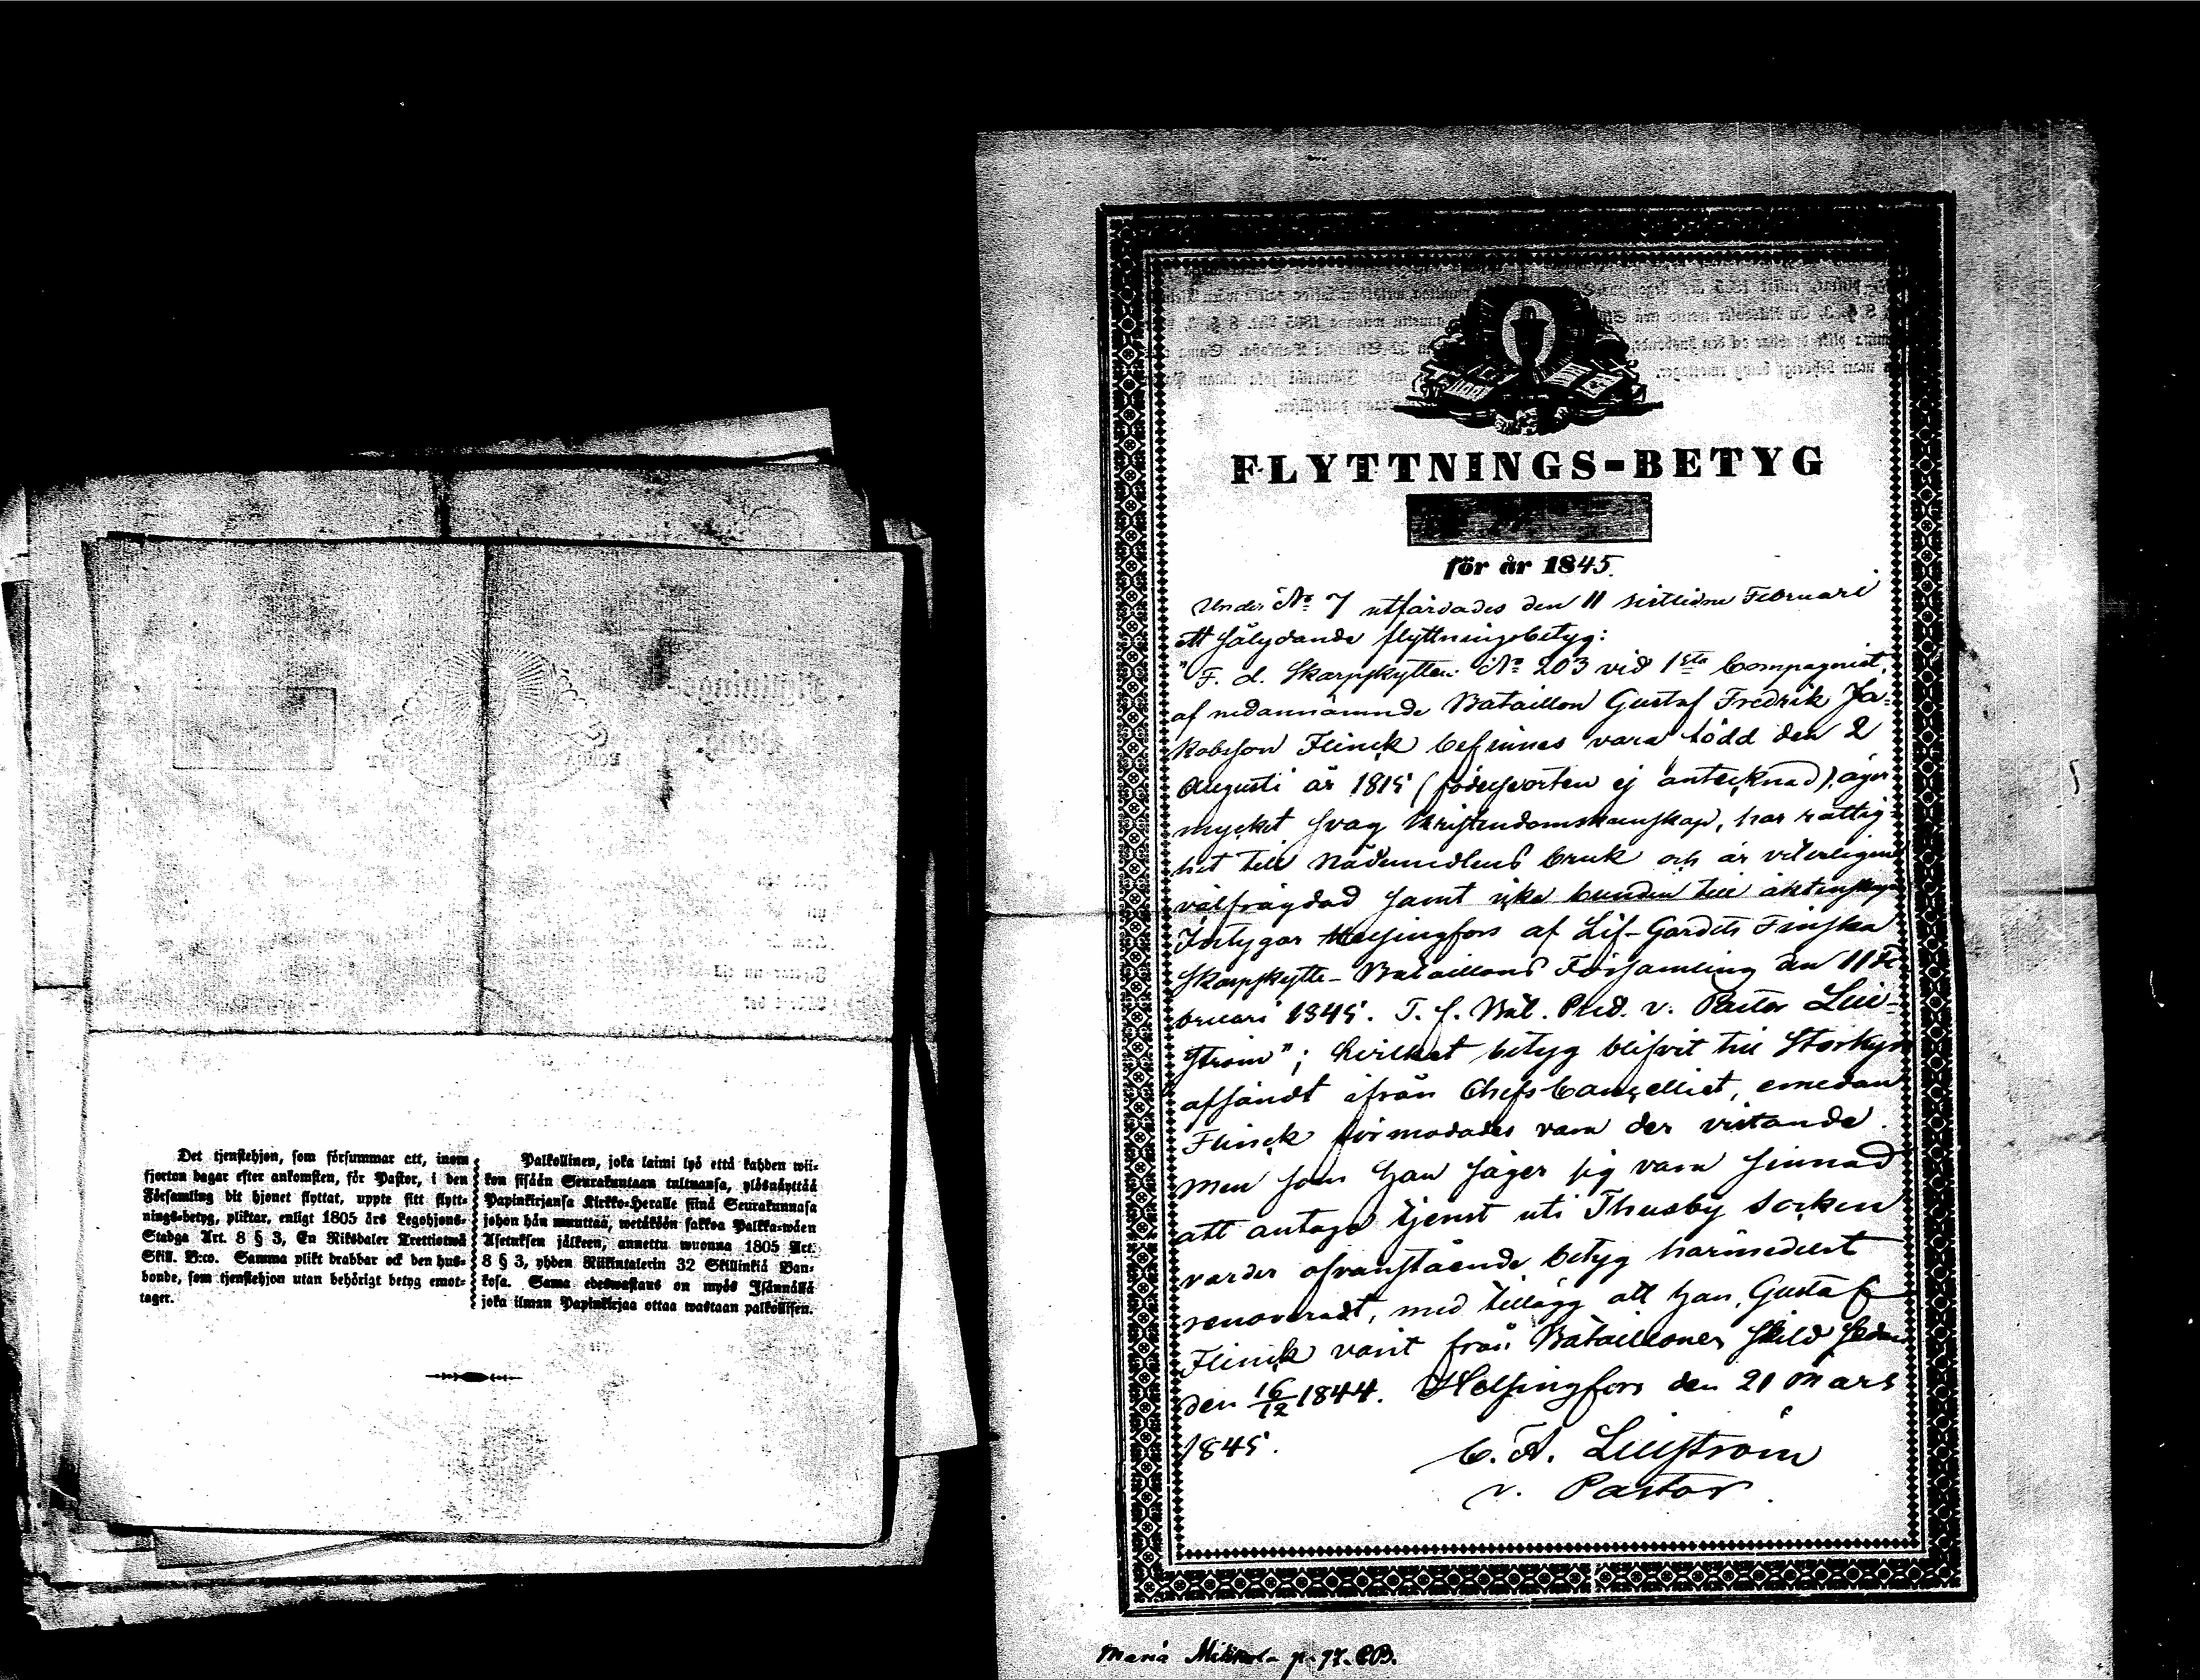 Det tjenstehjon, som försummar att, inom
fjorton dagar efter ankomsten, för Pastor, i den
Församling dit hjonet flyttat, uppte sitt flytt-
nings-betyg, pliktar, enligt 1805 års Legohjons-
Stadga Art. 8 § 3, En Riksdaler Trettiotwå
Skill. B:co. Samma plikt drabbar ock den hus-
bonde, som tjenstehjon utan behörigt betyg emot-
tager.
Palkollinen, joka laimi lyö että kahden wii-
kon sisään Seurakuntaan tultuansa, ylösnäyttää
Papinkirjansa Kirkko-Heralle siinä Seurakunnasa
johon hän muuttaa, wetäköön sakkoa Palkka-wäen
Asetuksen jälkeen, annettu wuonna 1805 Art.
8 § 3, yhden Riikintalerin 32 Skillinkiä Ban-
kosa. Sama edeswastaus on myös Isännällä
joka ilman Papinkirjaa ottaa wastaan palkollisen.
FLYTTNINGS-BETYG
för år 1845.
Under No 7 utfärdades den 11 sistledne Februari
ett sålydande flyttningsbetyg:
"F. d. Skarpskytten No 203 vid 1sta Compagniet,
af nedannämnde Bataillon Gustaf Fredrik Ja-
kobsson Flinck befinnes vara född den 2
Augusti år 1815 (födelseorten ej antecknad), äger
mycket svag Kristendomskunskap, har rättig-
het till Nådemedlens bruk och är veterligen
välfrägdad samt icke bunden till äktenskap
Intygar Helsingfors af Lif-Gardets Finska
Skarpskytte-Bataillons Församling den 11 Fe-
bruari 1845. T. f. Bat. Pred. v. Pastor Lili-
ström"; hvilket betyg blifvit till Storkyro
afsändt ifrån Chefs Cancelliet, emedan
Flinck förmodades vara der vistande.
Men som han säger sig vara sinnad
att antaga tjenst uti Thusby Socken
varder ofvanstående betyg härmedelst
renoveradt, med tillägg att han, Gustaf
Flinck varit från Bataillonen skild sedan
den 16/12 1844. Helsingfors den 21 Mars
1845.
C. A. Liliström
v. Pastor.
Maria p. 97.